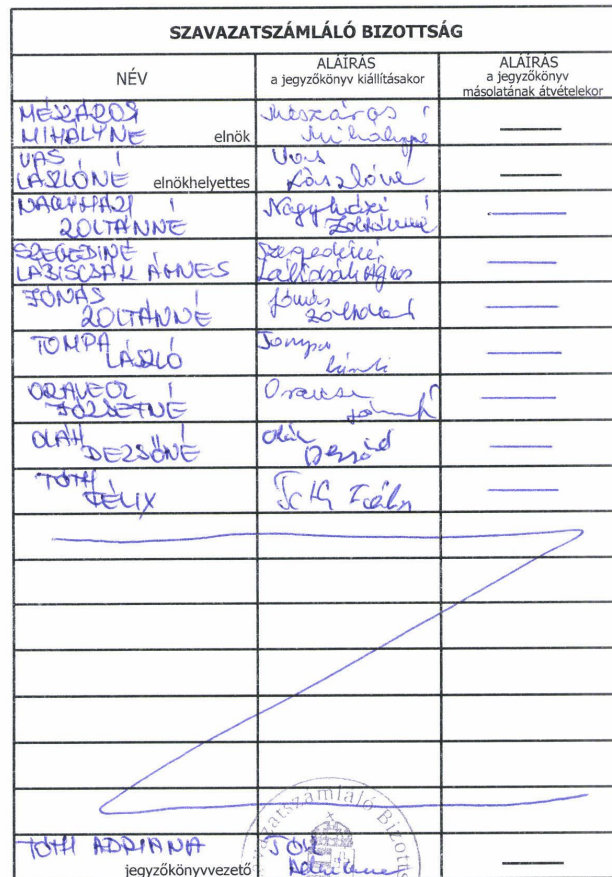 SZAVAZATSZÁMLÁLÓ BIZOTTSÁG
NÉV
ALÁÍRÁS
a jegyzőkönyv kiállításakor
ALÁÍRÁS
a jegyzőkönyv
másolatának átvételekor
MÉSZÁROS
MIHÁLYNÉ elnök
Mészáros
Mihályné
VAS
LÁSZLÓNÉ elnökhelyettes
Vas
Lászlóné
NAGYHÁZI
ZOLTÁNNÉ
Nagyházi
Zoltánné
SZEGEDINÉ
LABISCSÁK ÁGNES
Szegediné
Labiscsák Ágnes
JÓNÁS
ZOLTÁNNÉ
Jónás
Zoltánné
TOMPA
LÁSZLÓ
Tompa
László
ORAVECZ
JÓZSEFNÉ
OLÁH
DEZSŐNÉ
Oláh
Dezsőné
TÓTH
FÉLIX
Tóth Félix
TÓTH ADRIANA
jegyzőkönyvvezető
Tóth
Adrianna
Szavazatszámláló Bizottság